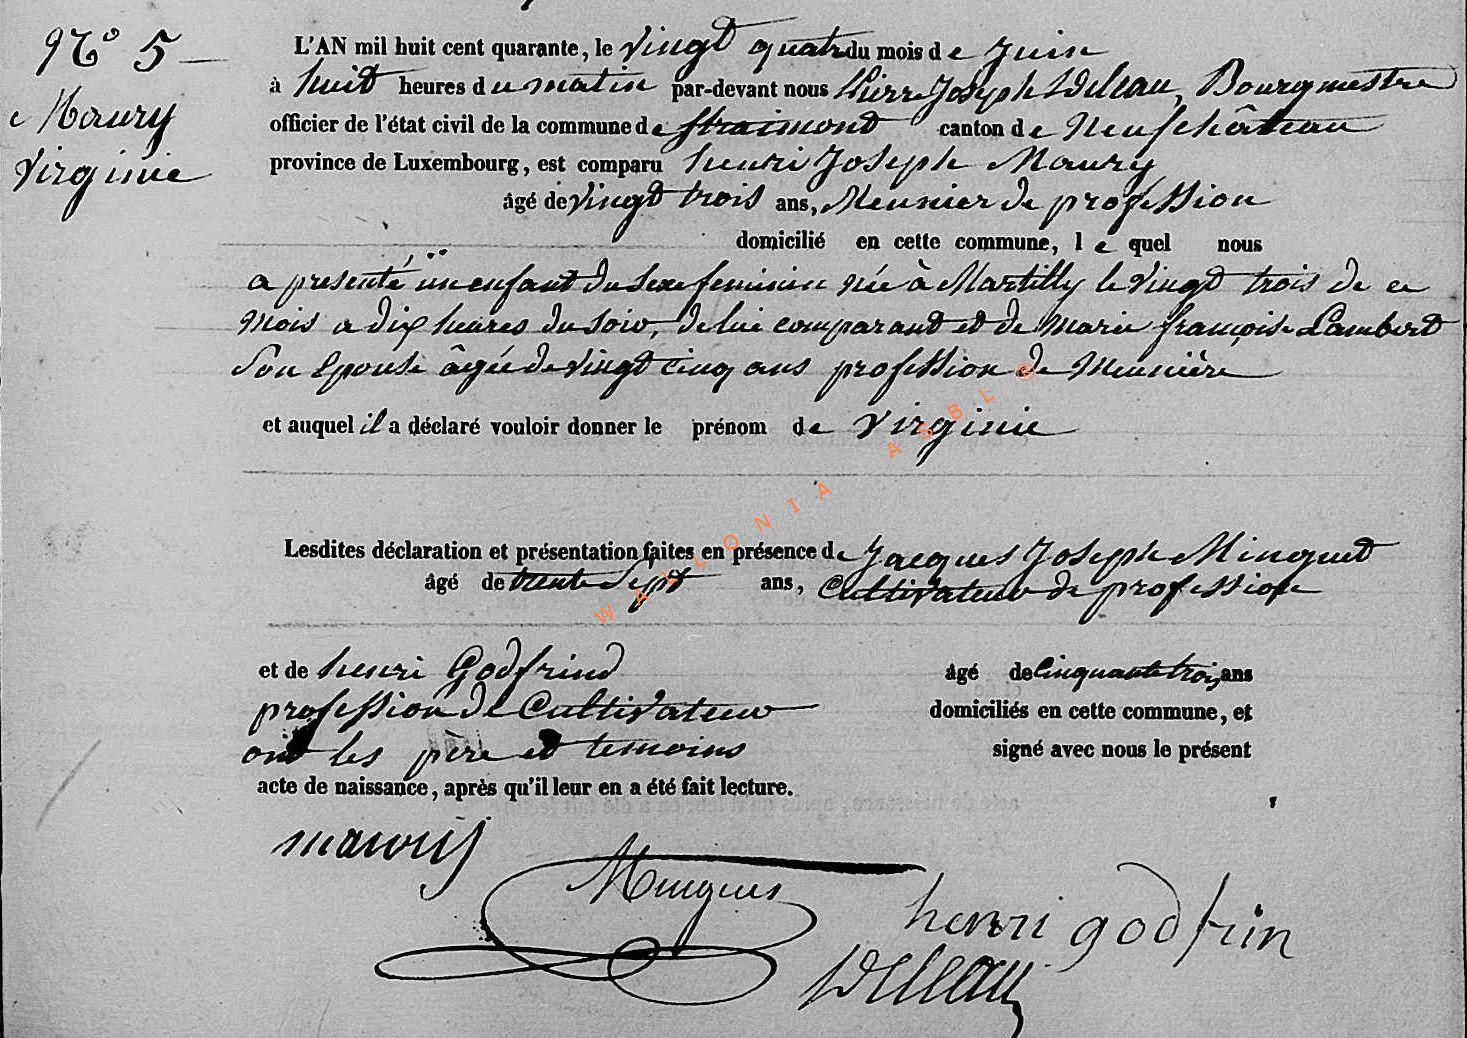 N° 5
Maury
Virginie
L'AN mil huit cent quarante, le vingt quatre du mois de Juin
à huit heures du matin par-devant nous Pierre Joseph Delleau, Bourgmestre
officier de l'état civil de la commune de straimont canton de Neufchâteau
province de Luxembourg, est comparu henri Joseph Maury
âgé de vingt trois ans, Meunier de profession
domicilié en cette commune, lequel nous
a presenté un enfant du sexe feminin née à Martilly le vingt trois de ce
mois a dix heures du soir, de lui comparant et de Marie françoise Lambert
son Epouse âgée de vingt cinq ans profession de Meunière
et auquel il a déclaré vouloir donner le prénom de Virginie
Lesdites déclaration et présentation faites en présence de Jacques Joseph Minguet
âgé de trente sept ans, Cultivateur de profession
et de henri Godfrind âgé de cinquante trois ans
profession de Cultivateur domiciliés en cette commune, et
ont les père et temoins signé avec nous le présent
acte de naissance, après qu'il leur en a été fait lecture.
Minguet
henri godfrin
Delleau
WALLONIA ASBL ©